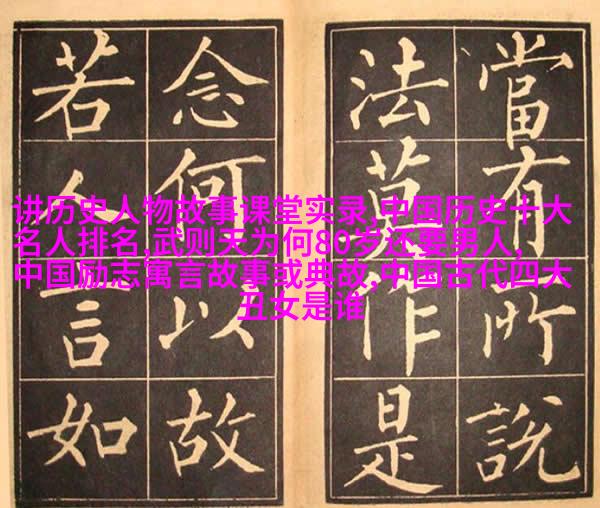 讲历史人物故事课堂实录,中国历史十大
名人排名,武则天为何80岁还要男人,
中国励志寓言故事或典故,中国古代四大
丑女是谁
當有所說
法莫作是
念何以故
若人言如